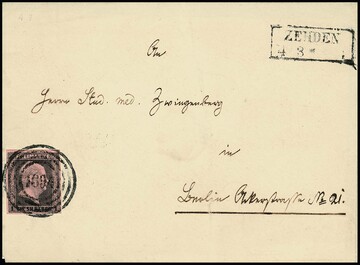 ZEHDEN
4 3
An
Herrn Stud. med. Zwingenberg
in
Berlin Ackerstrasse No 21.